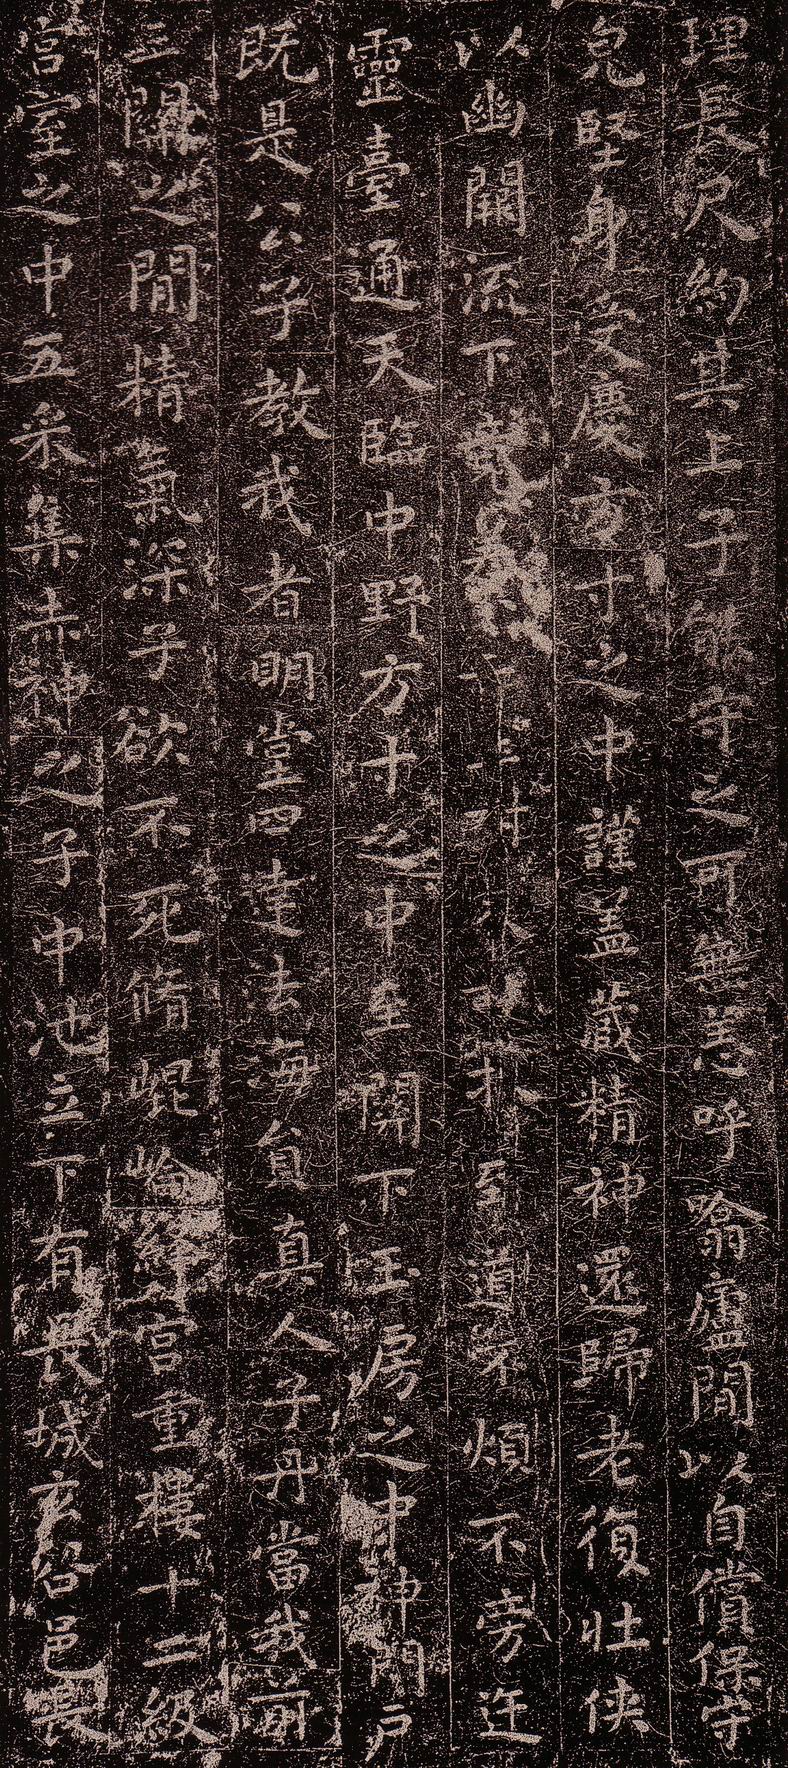 理長尺約其上子能守之可無恙呼噏廬間以自償保守
皃堅身受慶方寸之中謹盖藏精神還歸老復壯侠
以幽闕流下竟道不煩不旁迕
靈臺通天臨中野方寸之中至關下玉房之中神門戶
既是公子教我者明堂四達法海員真人子丹當我前
三關之間精氣深子欲不死脩崐崘絳宮重樓十二級
宮室之中五采集赤神之子中池立下有長城玄谷邑長